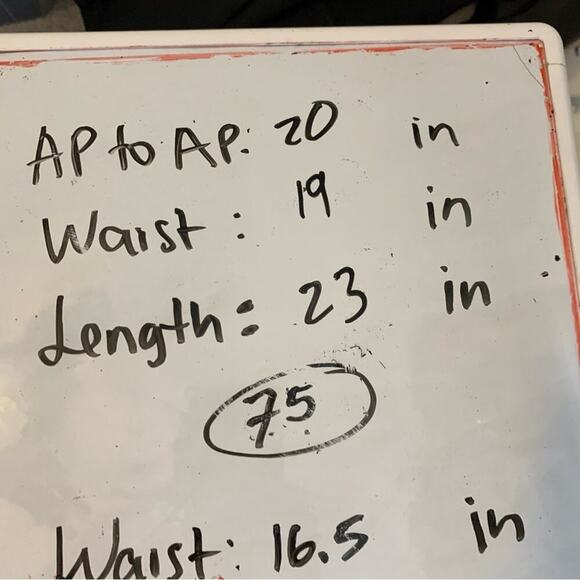 AP to AP: 20 in
Waist: 19 in
Length: 23 in
75
Waist: 16.5 in